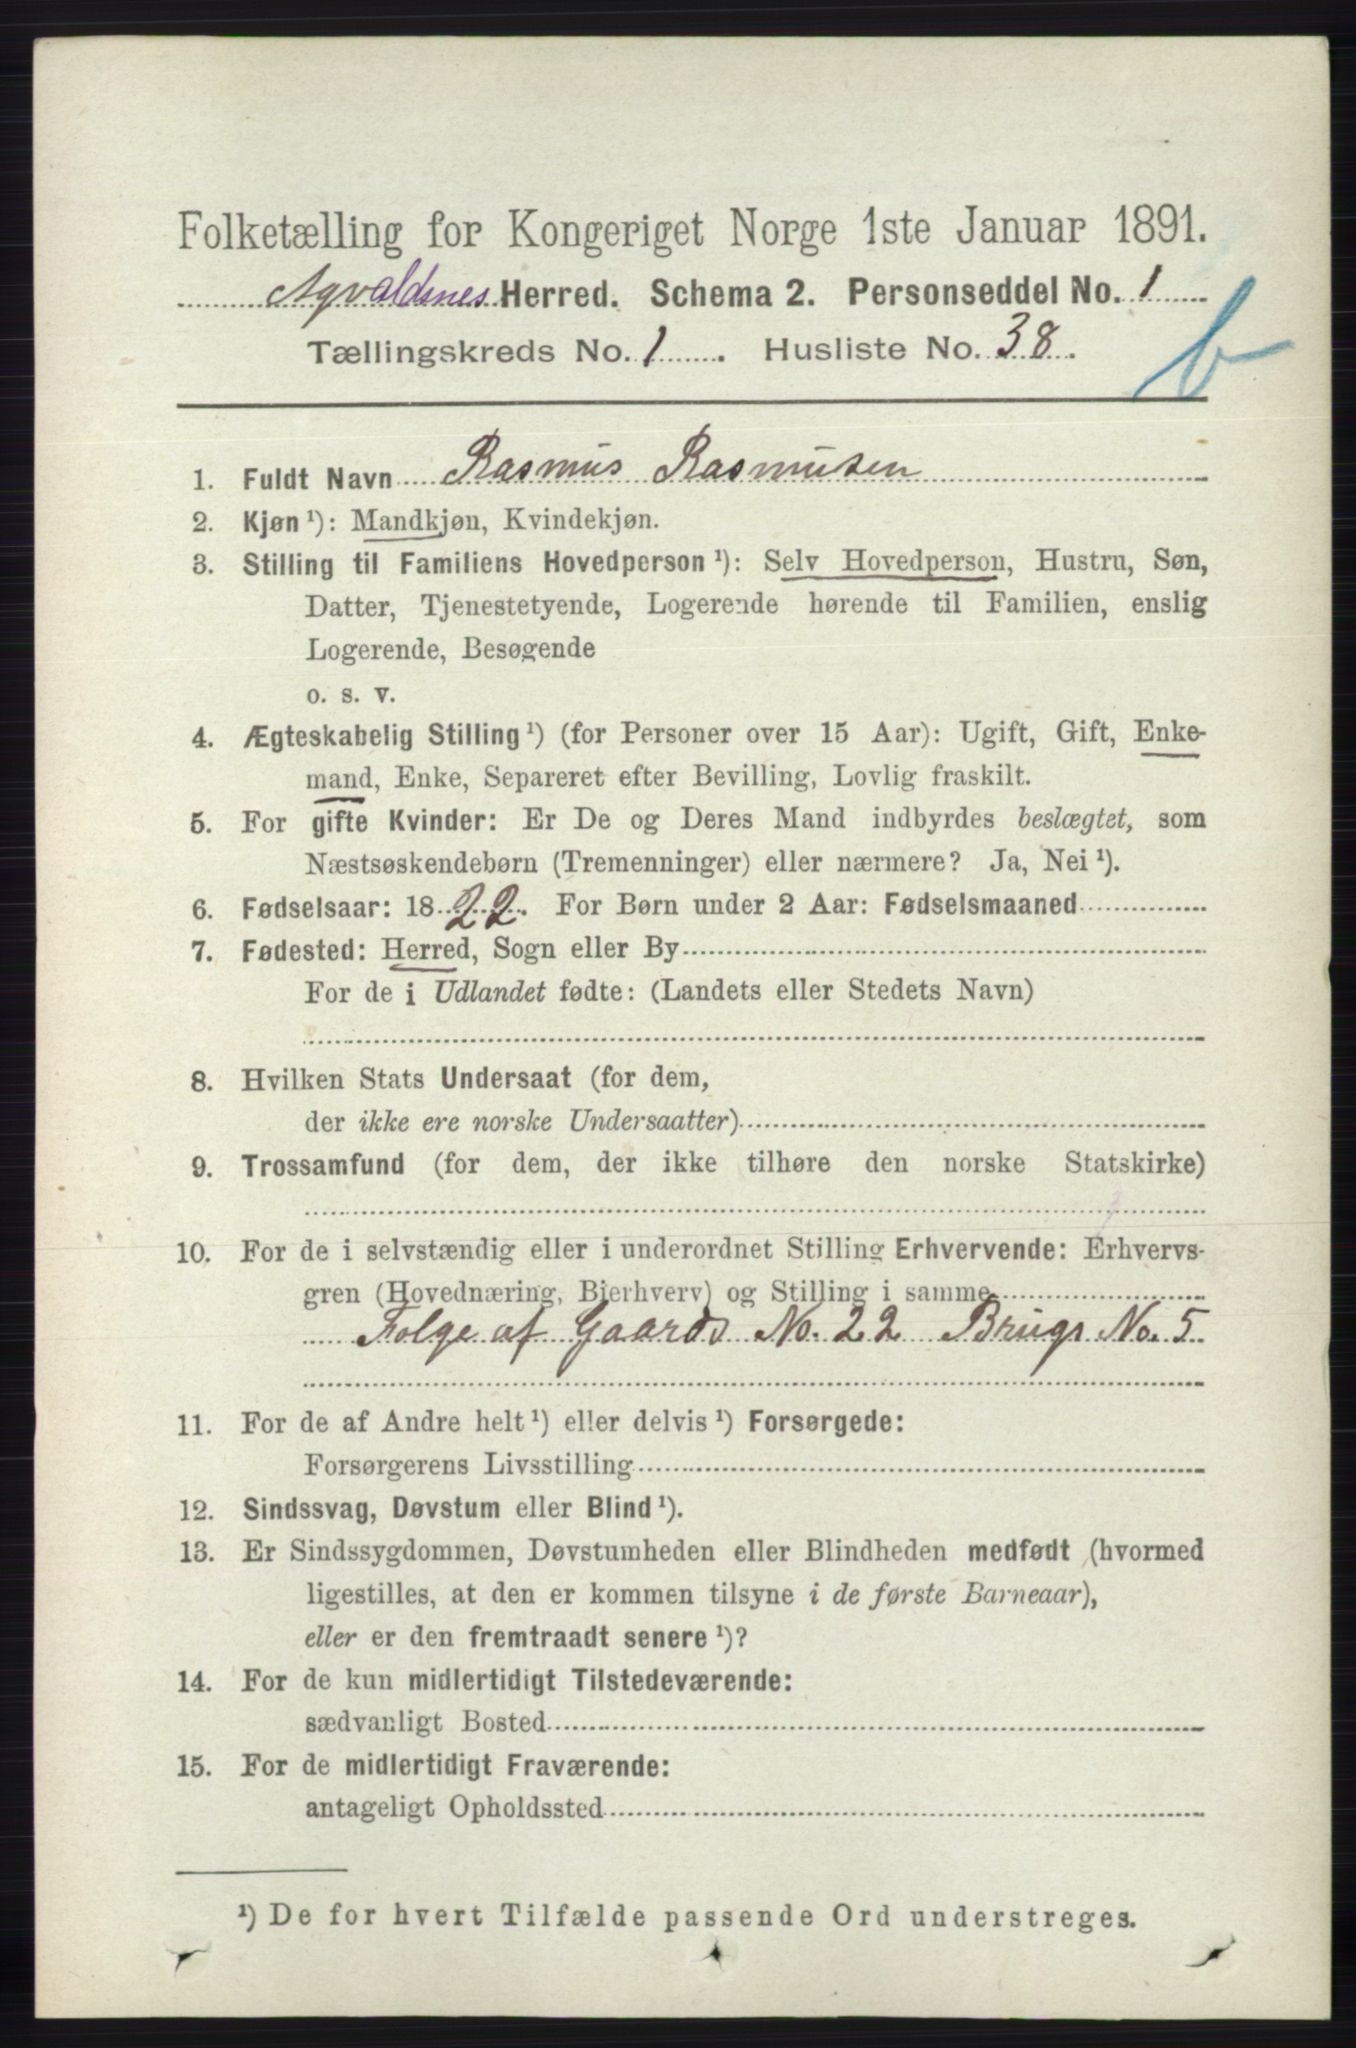 Folketælling for Kongeriget Norge 1ste Januar 1891.
Agvaldsnes Herred. Schema 2. Personseddel No. 1
Tællingskreds No. 1. Husliste No. 38.
b
1. Fuldt Navn Rasmus Rasmusen
2. Kjøn ¹): Mandkjøn, Kvindekjøn.
3. Stilling til Familiens Hovedperson ¹): Selv Hovedperson, Hustru, Søn,
Datter, Tjenestetyende, Logerende hørende til Familien, enslig
Logerende, Besøgende
o. s. v.
4. Ægteskabelig Stilling ¹) (for Personer over 15 Aar): Ugift, Gift, Enke-
mand, Enke, Separeret efter Bevilling, Lovlig fraskilt.
5. For gifte Kvinder: Er De og Deres Mand indbyrdes beslægtet, som
Næstsøskendebørn (Tremenninger) eller nærmere? Ja, Nei ¹).
6. Fødselsaar: 1822. For Børn under 2 Aar: Fødselsmaaned
7. Fødested: Herred, Sogn eller By
For de i Udlandet fødte: (Landets eller Stedets Navn)
8. Hvilken Stats Undersaat (for dem,
der ikke ere norske Undersaatter)
9. Trossamfund (for dem, der ikke tilhøre den norske Statskirke)
10. For de i selvstændig eller i underordnet Stilling Erhvervende: Erhvervs-
gren (Hovednæring, Bierhverv) og Stilling i samme
Folge af Gaards No. 22 Brugs No. 5
11. For de af Andre helt ¹) eller delvis ¹) Forsørgede:
Forsørgerens Livsstilling
12. Sindssvag, Døvstum eller Blind ¹).
13. Er Sindssygdommen, Døvstumheden eller Blindheden medfødt (hvormed
ligestilles, at den er kommen tilsyne i de første Barneaar),
eller er den fremtraadt senere ¹)?
14. For de kun midlertidigt Tilstedeværende:
sædvanligt Bosted
15. For de midlertidigt Fraværende:
antageligt Opholdssted
¹) De for hvert Tilfælde passende Ord understreges.